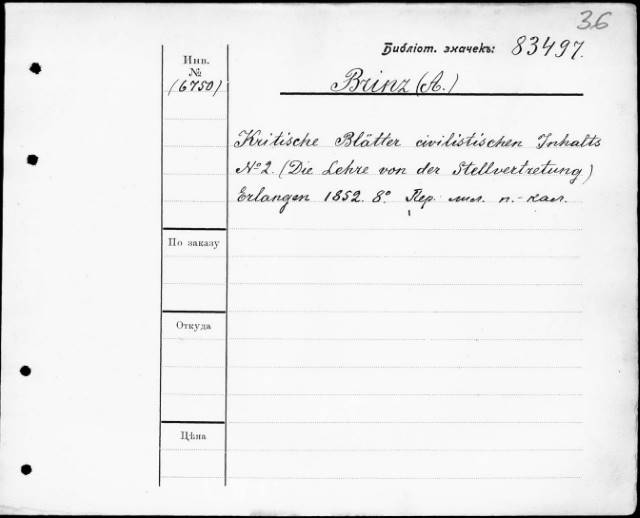 36
Библіот. значекъ: 83497.
Инв.
№
(6750)
Brinz (A.)
Kritische Blätter civilistischen Inhalts
№ 2. (Die Lehre von der Stellvertretung)
Erlangen 1852. 8º. Пер. лил. п.-кал.
По заказу
Откуда
Цѣна